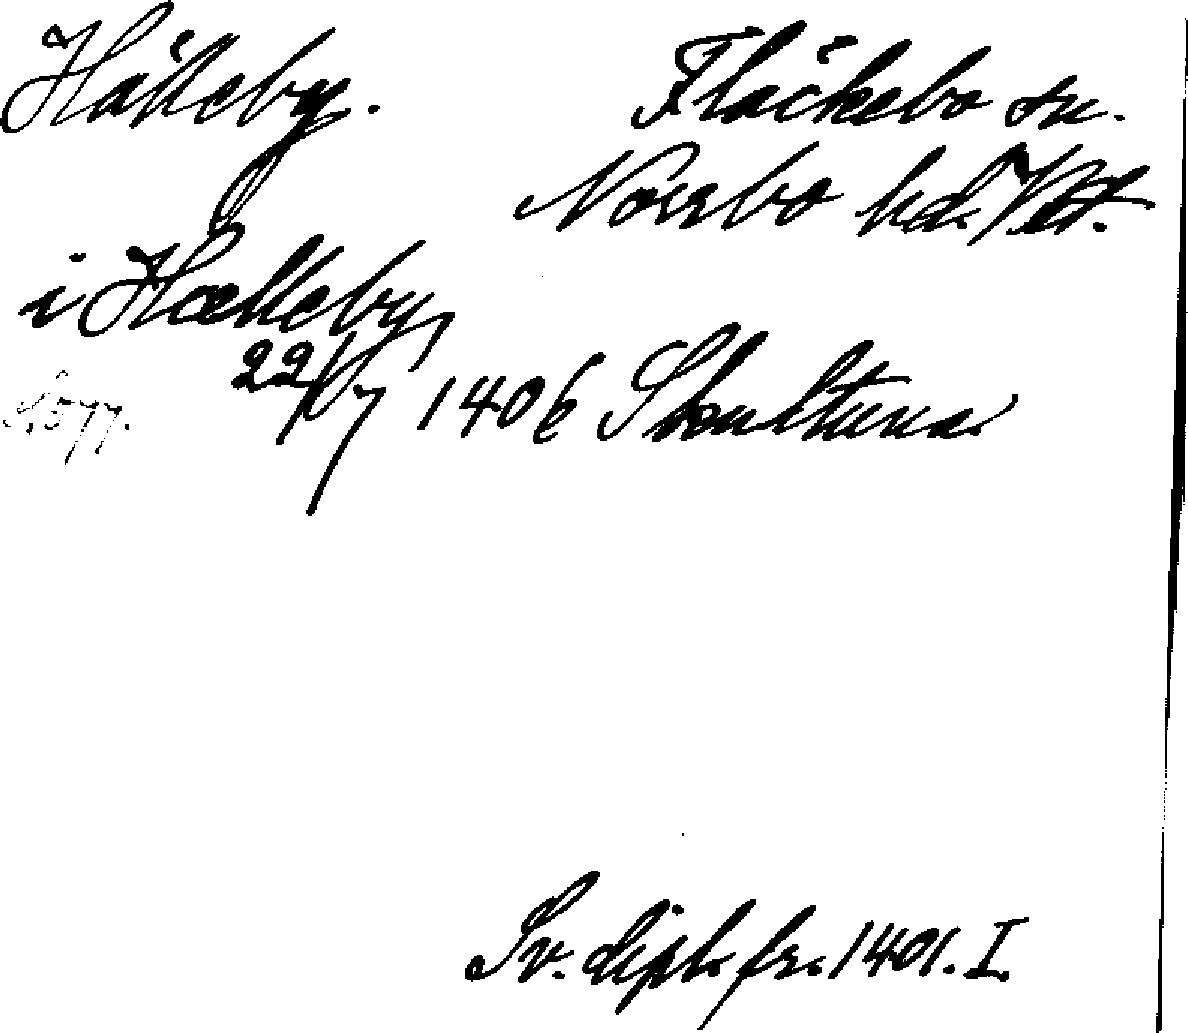 Hälleby. Fläckebo sn.
Norrbo hd. Vstl.
i Hælleby,
22/7 1406 Skultuna
Sv. dipl. fr. 1401. I.